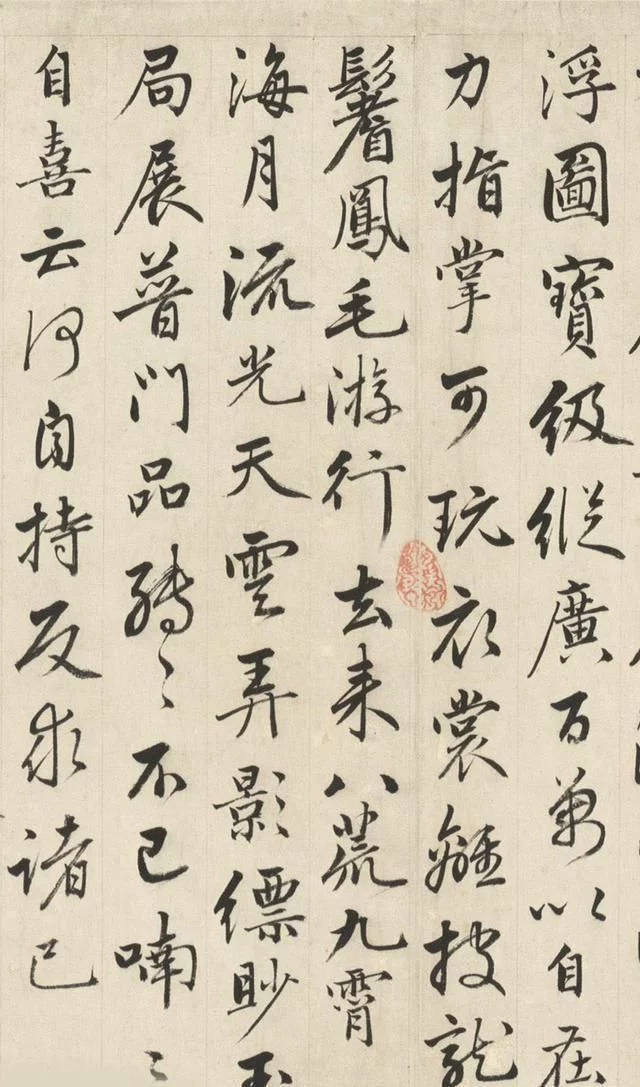 浮圖寶級縱廣百萬以自在
力指掌可玩衣裳離披龍
鬐鳳毛游行去来八荒九霄
海月流光天雲弄影縹眇玉
局展普門品轉〻不已喃〻
自喜云何自持反求諸己